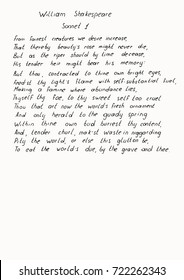 William Shakespeare
Sonnet 1
From fairest creatures we desire increase,
That thereby beauty's rose might never die,
But as the riper should by time decease,
His tender heir might bear his memory:
But thou, contracted to thine own bright eyes,
Feed'st thy light's flame with self-substantial fuel,
Making a famine where abundance lies,
Thyself thy foe, to thy sweet self too cruel
Thou that art now the world's fresh ornament
And only herald to the gaudy spring
Within thine own bud buriest thy content,
And, tender churl, mak'st waste in niggarding
Pity the world, or else this glutton be,
To eat the world's due, by the grave and thee
shutterstock.com · 722262343